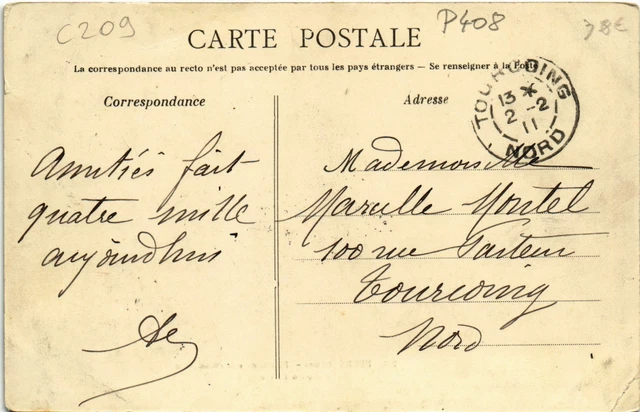 C209
P408
38€
CARTE POSTALE
La correspondance au recto n'est pas acceptée par tous les pays étrangers — Se renseigner à la Poste
Correspondance
Adresse
TOURCOING
13 *
2 - 2
11
NORD
Amitiés fait
quatre mille
aujourdhui
Mademoiselle
Marcelle Montel
100 rue Pasteur
Tourcoing
Nord